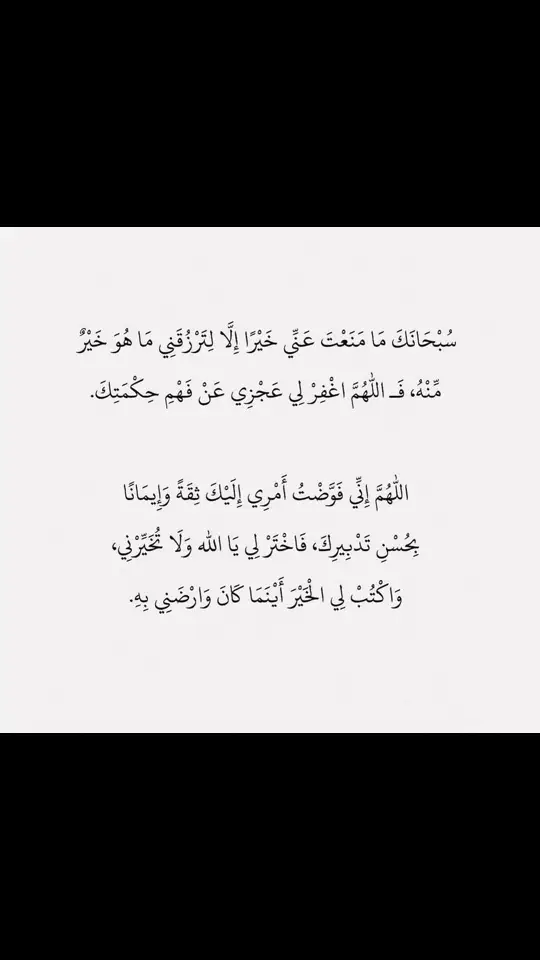 سُبْحَانَكَ مَا مَنَعْتَ عَنِّي خَيْرًا إِلَّا لِتَرْزُقَنِي مَا هُوَ خَيْرٌ
مِّنْهُ، فَـ اللَّهُمَّ اغْفِرْ لِي عَجْزِي عَنْ فَهْمِ حِكْمَتِكَ.
اللَّهُمَّ إِنِّي فَوَّضْتُ أَمْرِي إِلَيْكَ ثِقَةً وَإِيمَانًا
بِحُسْنِ تَدْبِيرِكَ، فَاخْتَرْ لِي يَا الله وَلَا تُخَيِّرْنِي،
وَاكْتُبْ لِي الْخَيْرَ أَيْنَمَا كَانَ وَارْضَنِي بِهِ.